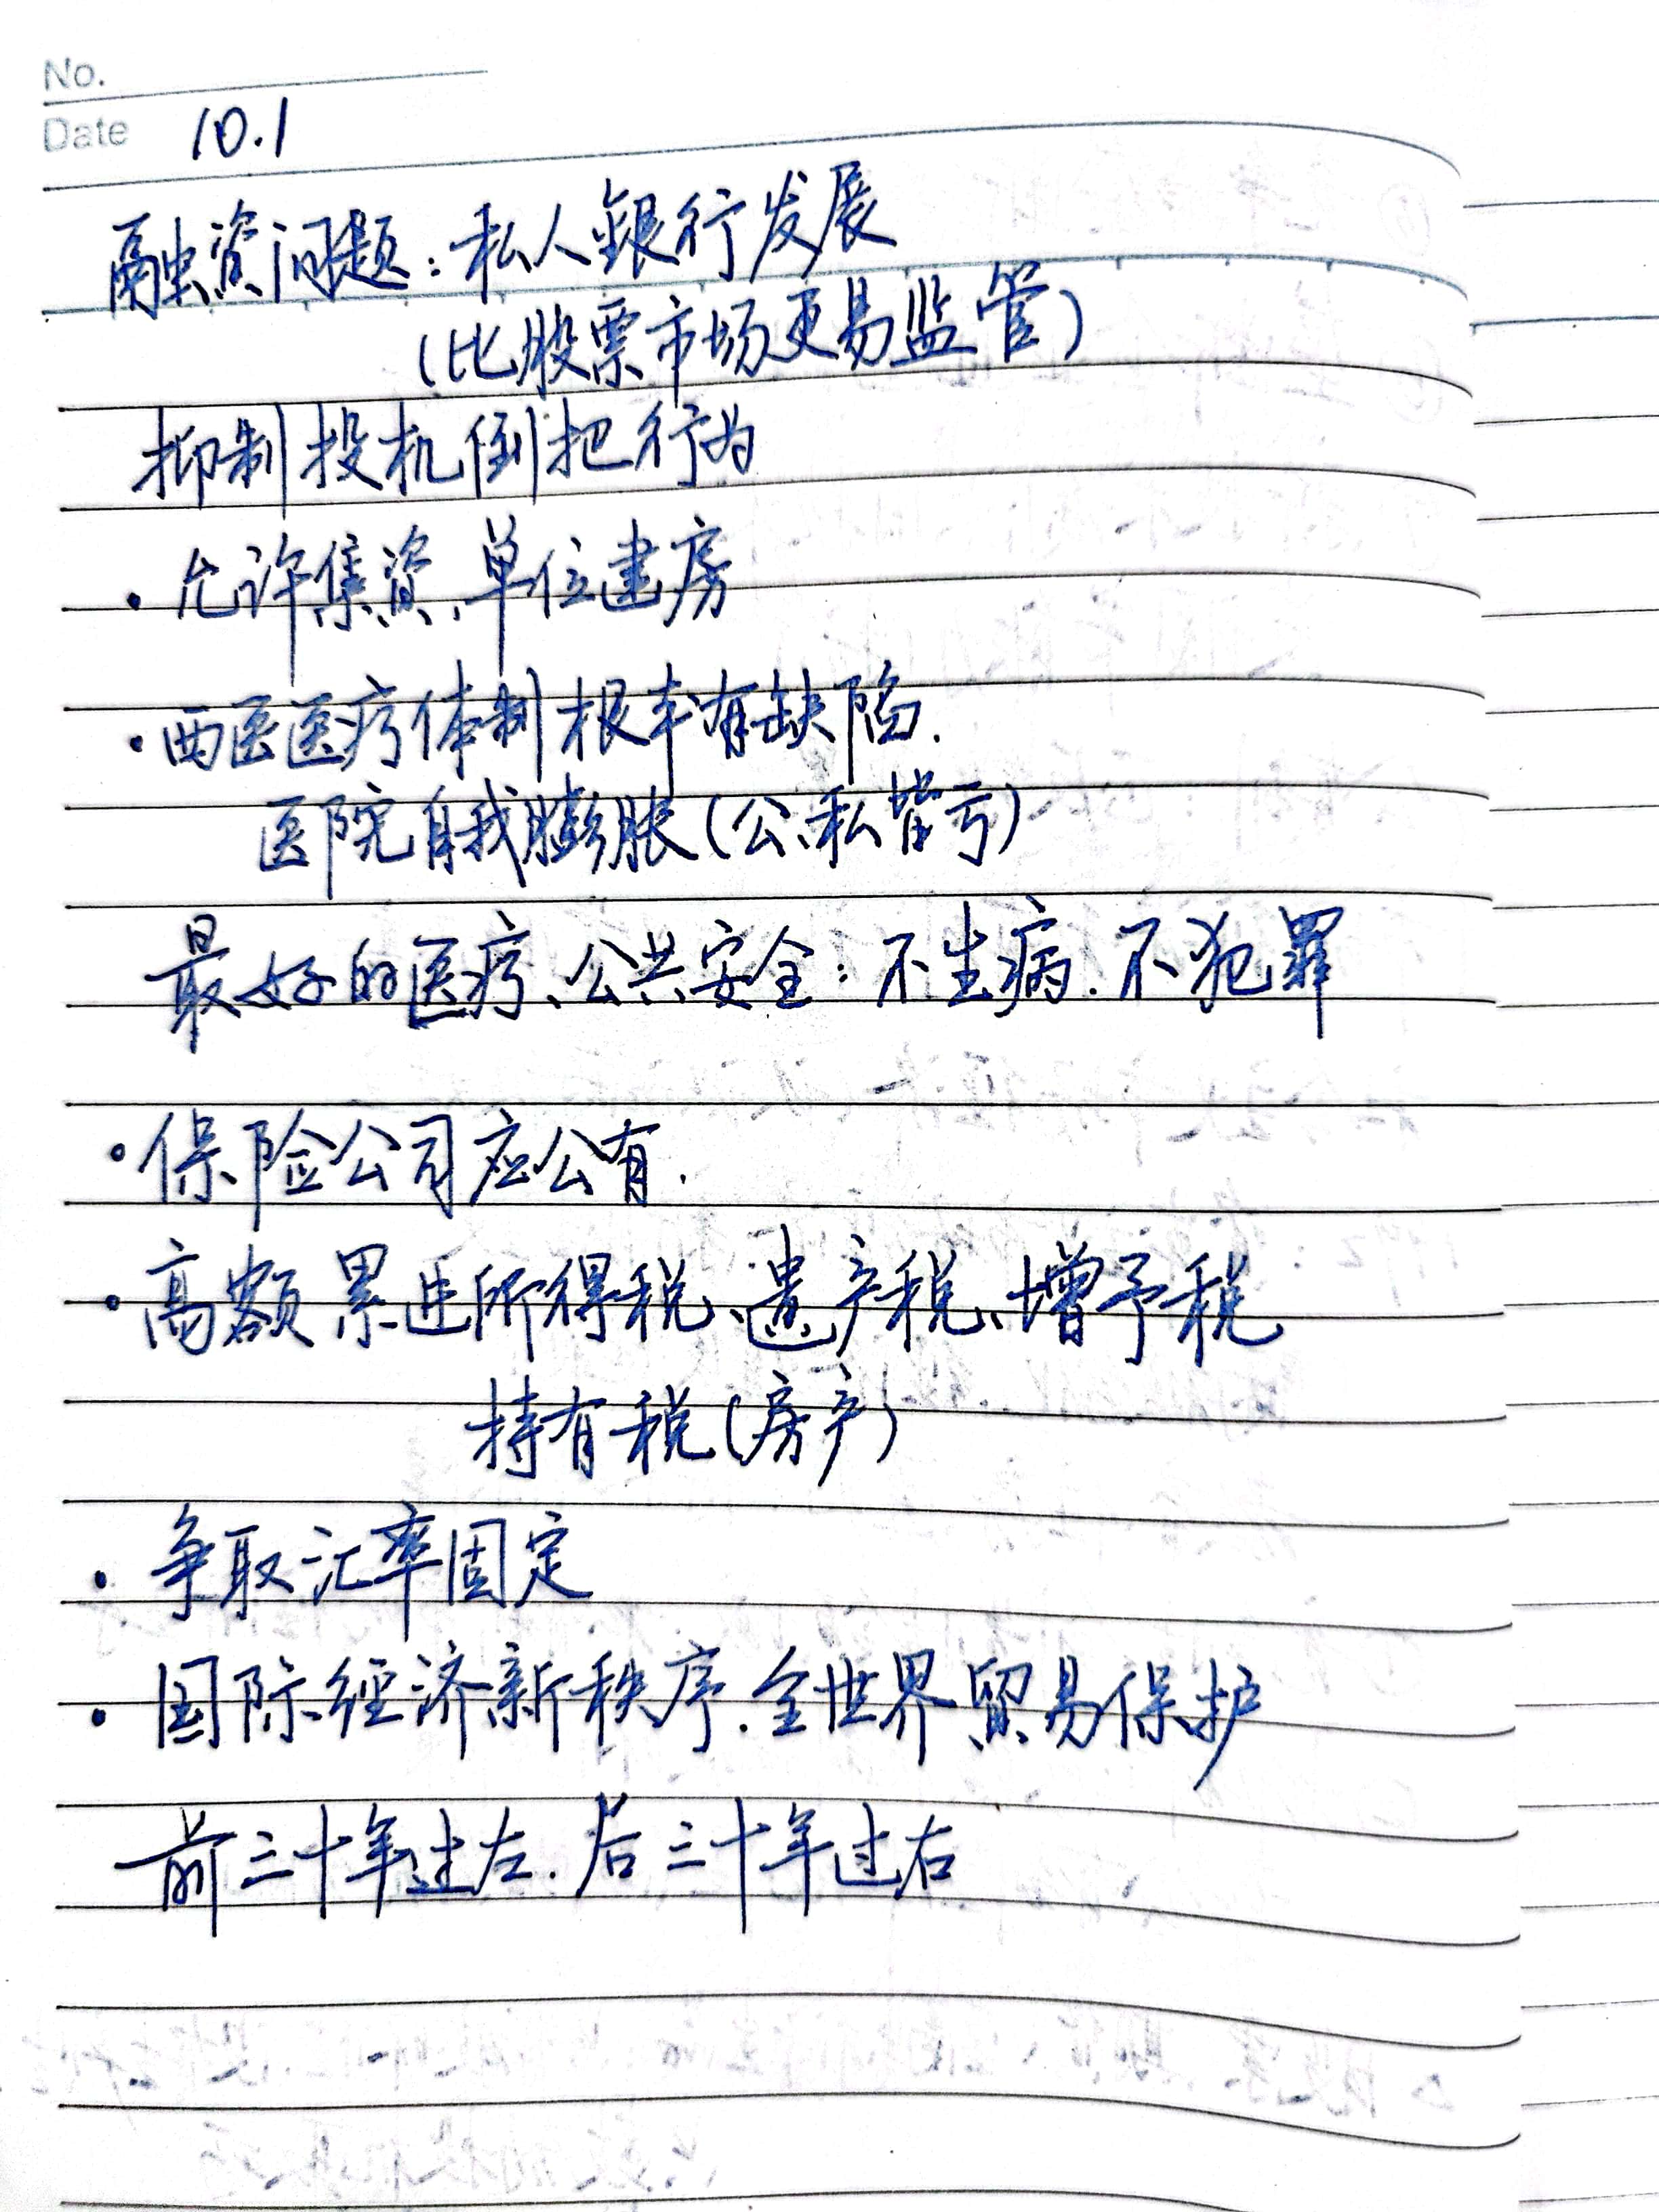 No.
Date 10.1
融资问题：私人銀行发展
（比股票市场更易监管）
抑制投机倒把行为
·允许集资、单位建房
·西医医疗体制根本有缺陷.
医院自我膨胀（公、私皆亏）
最好的医疗、公共安全：不生病.不犯罪
·保险公司应公有.
·高额累进所得税、遗产税、增予税
持有税（房产）
·争取汇率固定
·国际经济新秩序.全世界贸易保护
前三十年过左.后三十年过右